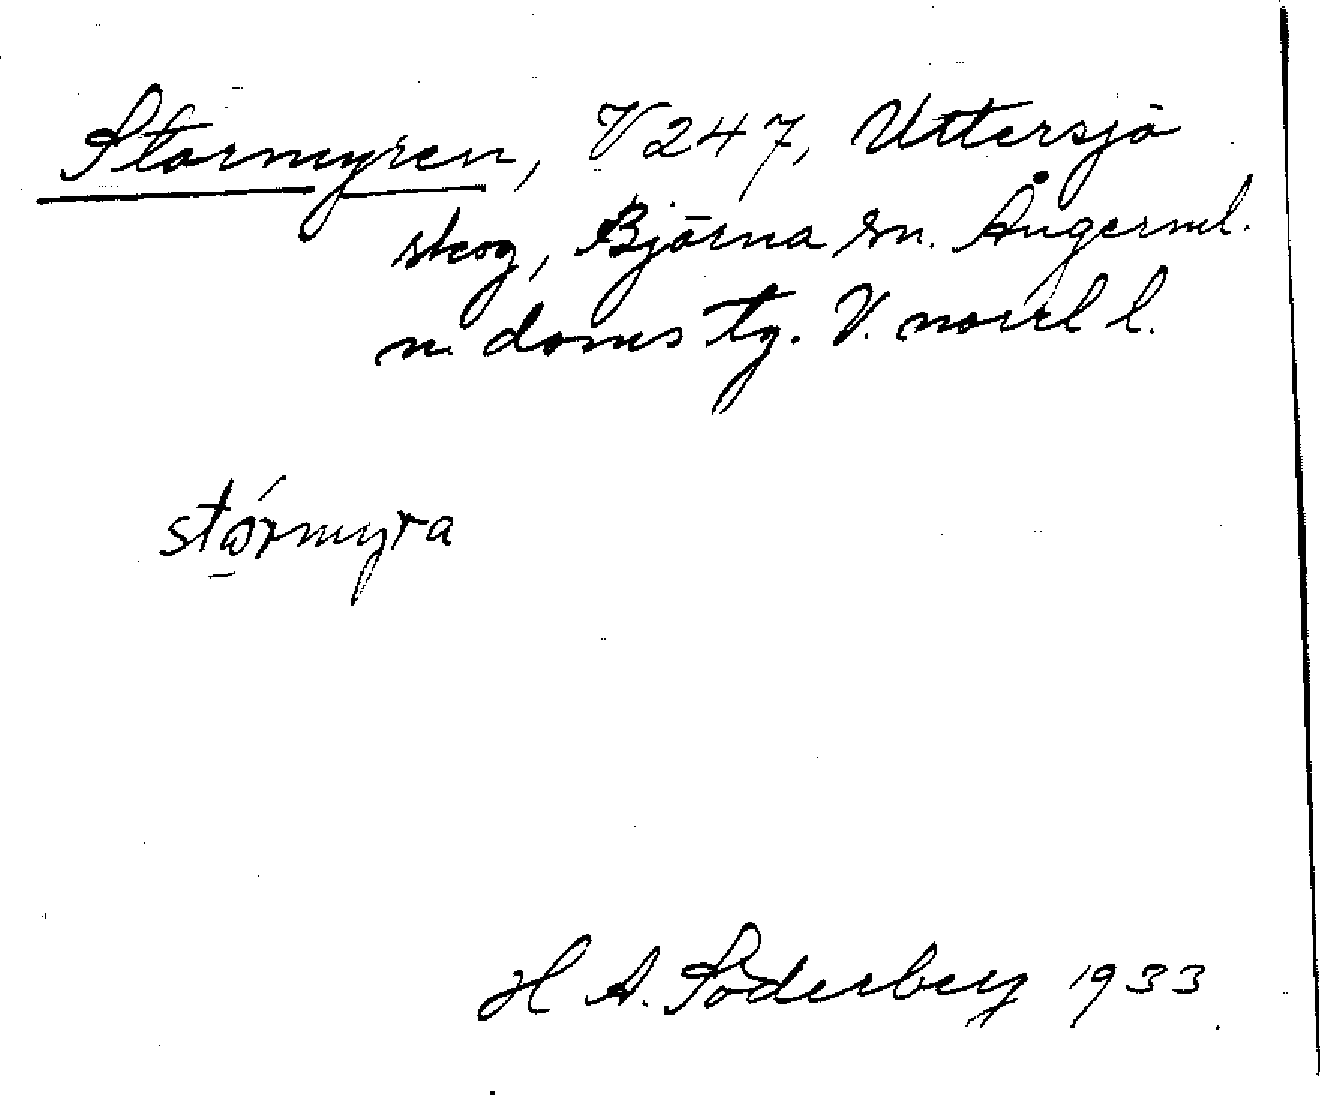 Stormyren, V 247, Uttersjö
skog, Björna sn. Ångerml.
n. doms tg. V. norrl l.
stórmyra
H A. Söderberg 1933